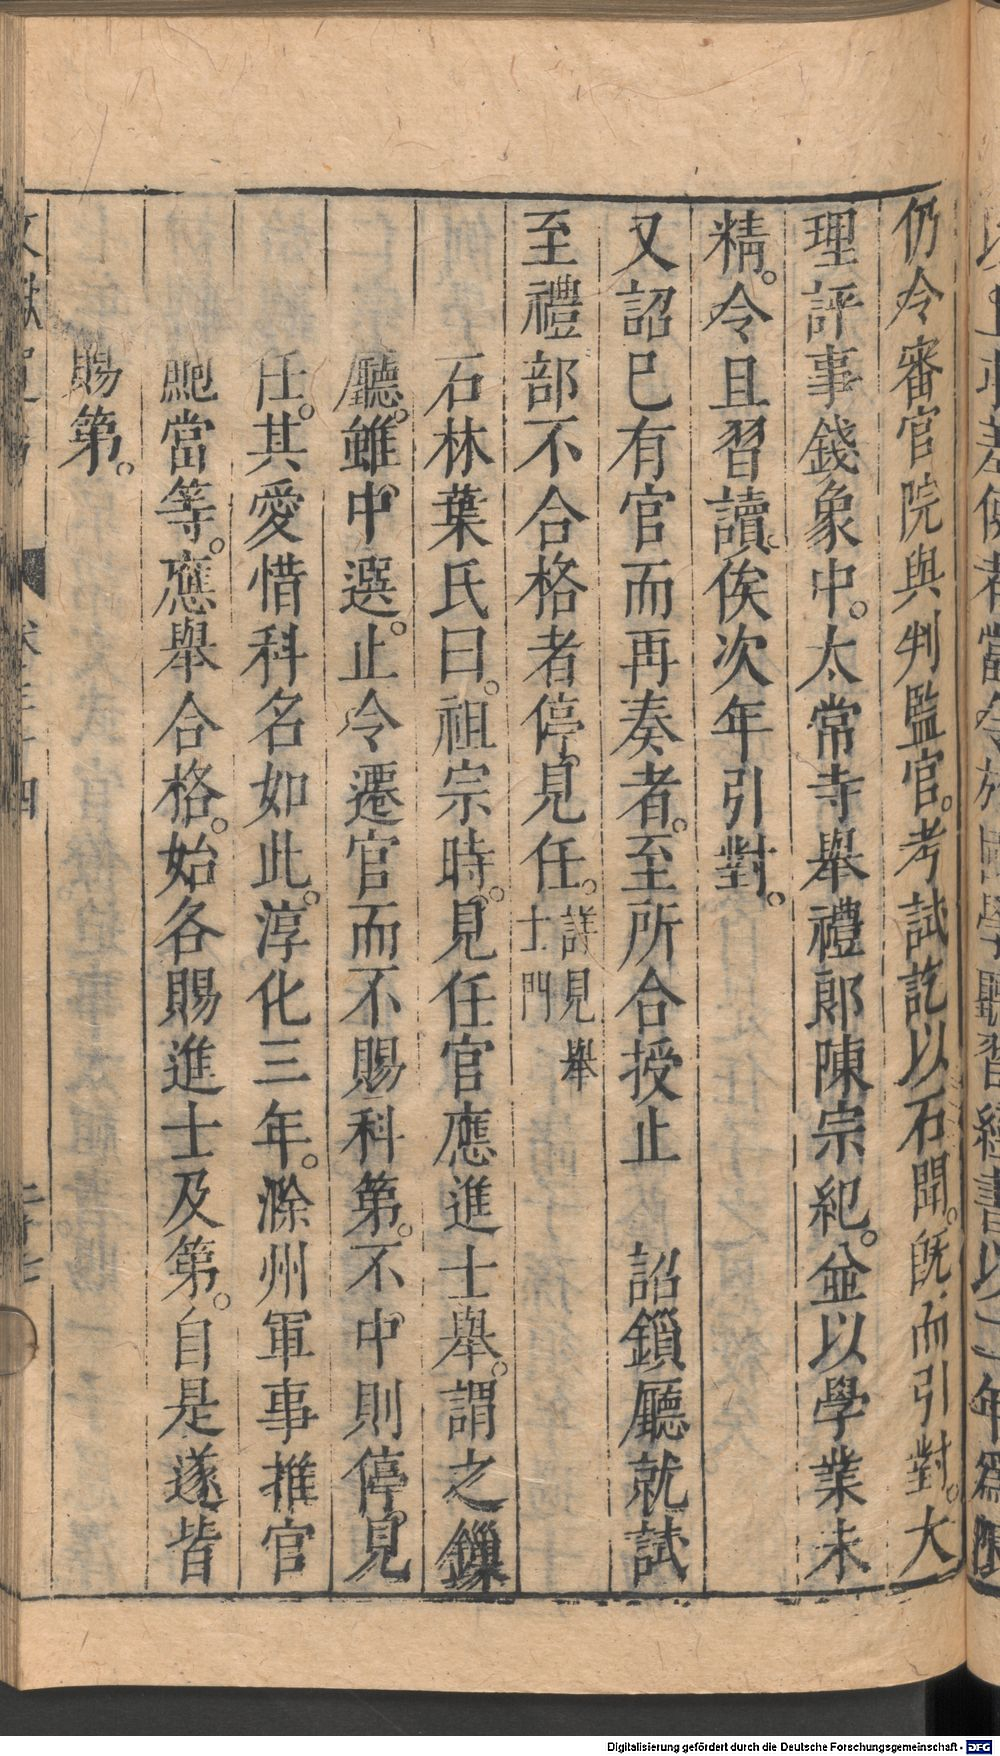 仍令審官院與判監官。考試訖以石聞。旣而引對。大
理評事錢象中。太常寺舉禮郎陳宗紀。並以學業未
精。令且習讀。俟次年引對。
又詔巳有官而再奏者。至所合授止　詔鎖廳就試
至禮部不合格者停見任。詳見舉士門
石林葉氏曰。祖宗時。見任官應進士舉。謂之鏁
廳。雖中選。止令遷官而不賜科第。不中則停見
任。其愛惜科名如此。淳化三年。滁州軍事推官
鮑當等。應舉合格。始各賜進士及第。自是遂皆
賜第。
Digitalisierung gefördert durch die Deutsche Forschungsgemeinschaft - DFG